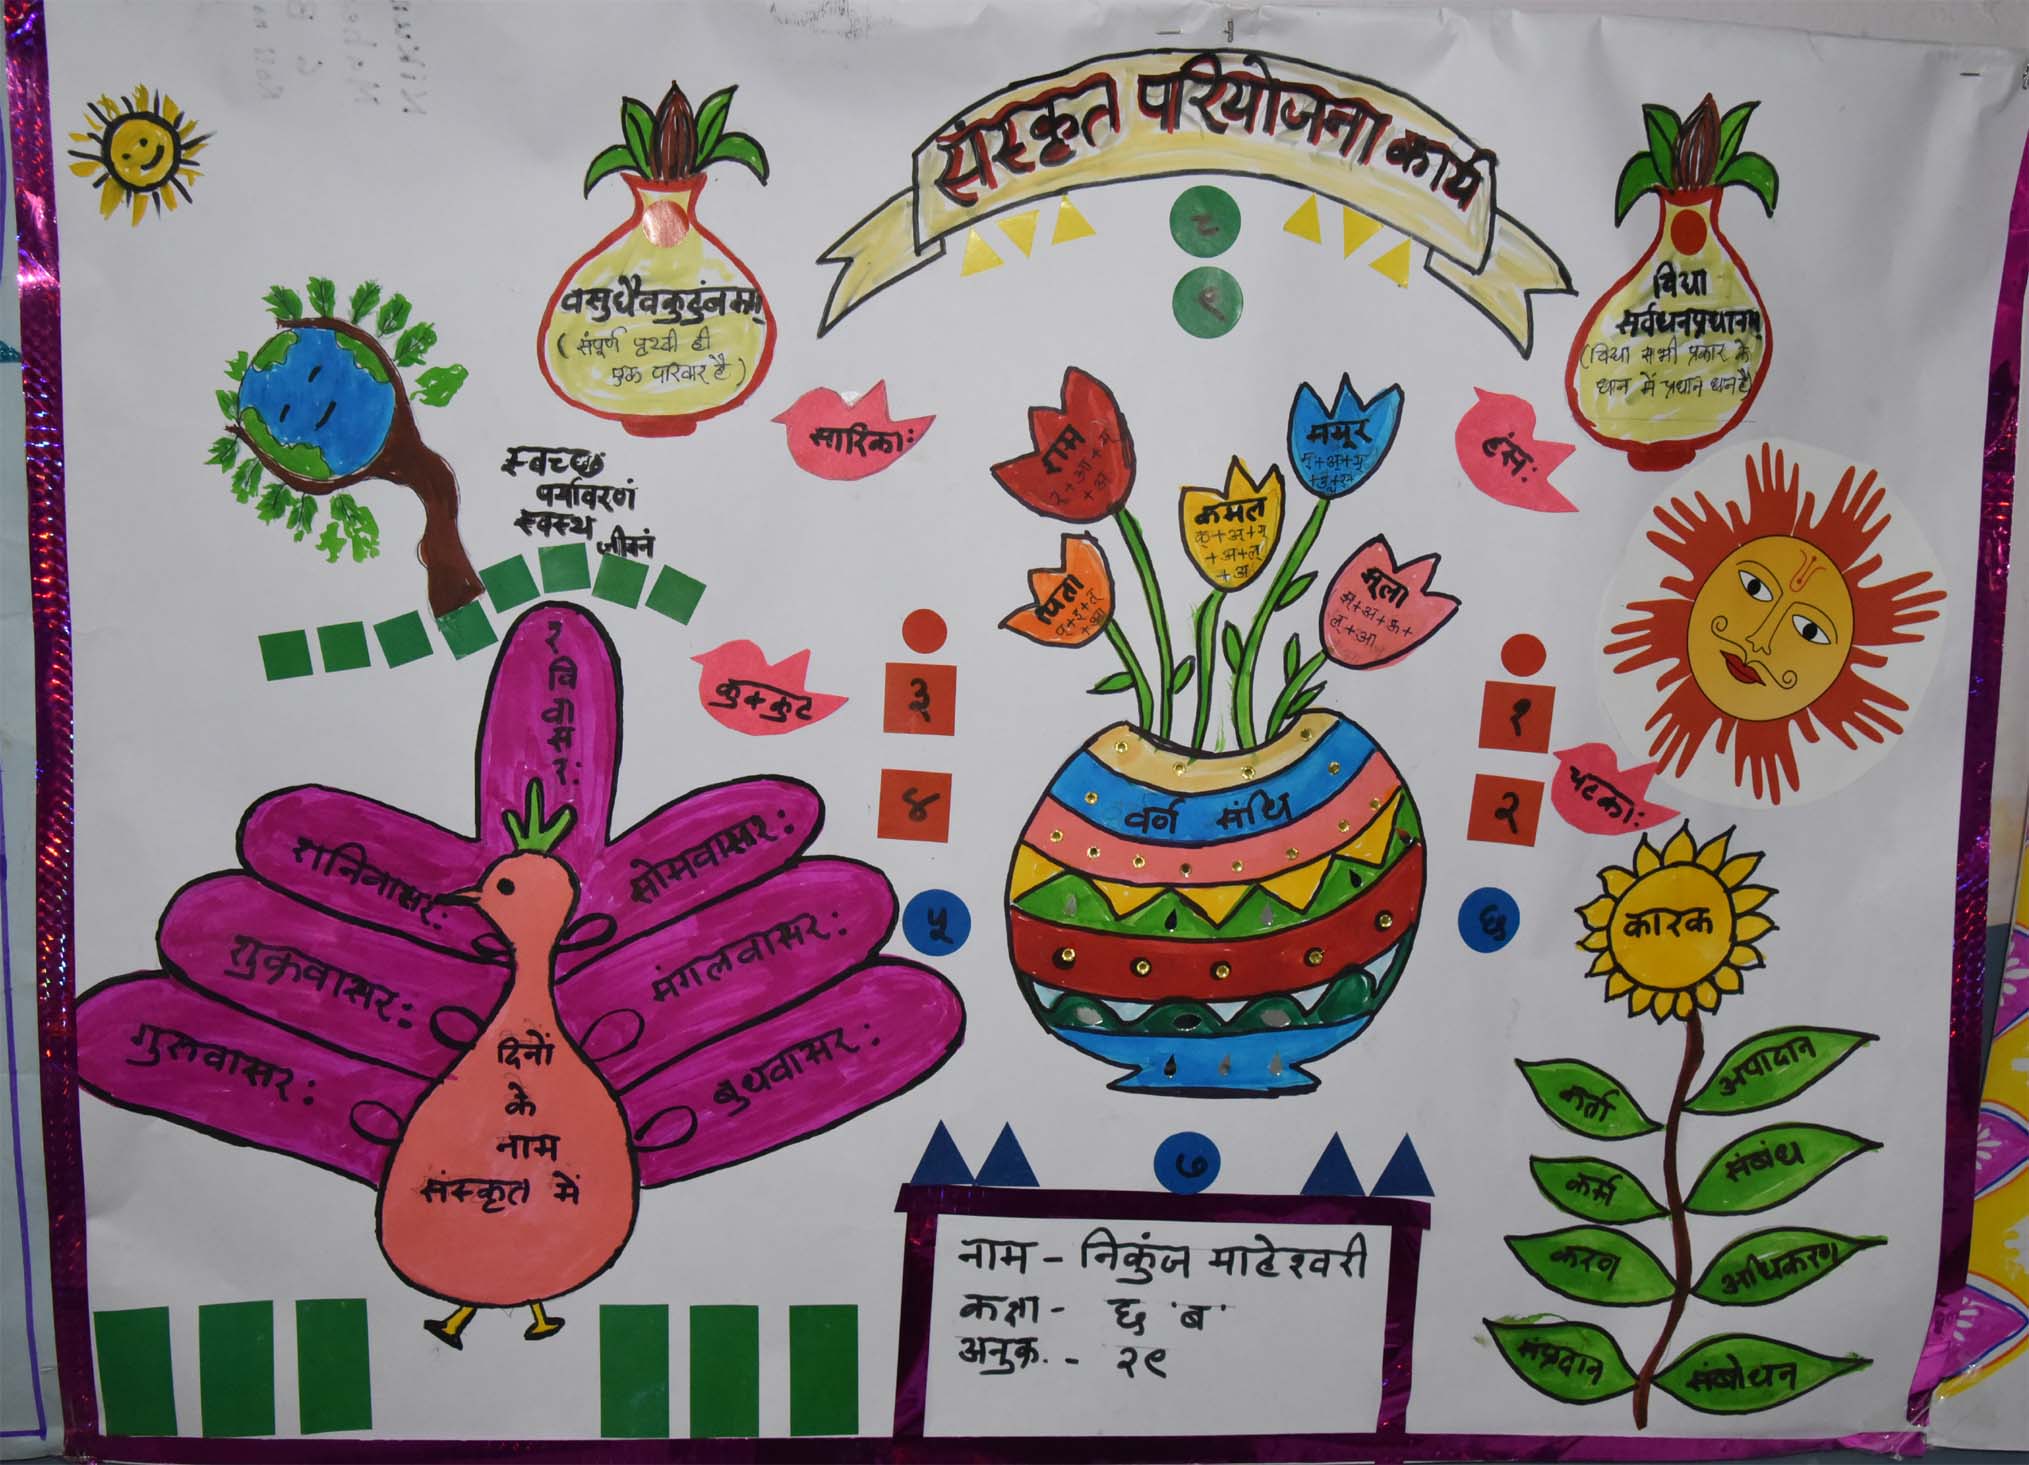 संस्कृत परियोजना कार्य
८
९
वसुधैवकुटुंबमम्
(संपूर्ण पृथ्वी ही
एक परिवार है)
विद्या
सर्वधनप्रधानम्
(विद्या सभी प्रकार के
धान में प्रधान धन है)
स्वच्छ
पर्यावरणं
स्वस्थ
जीवनं
सारिकाः
हंसः
कुक्कुट
चटकाः
राम
र्+आ+म्
+अ
कमल
क्+अ+म्
+अ+ल्
+अ
मयूर
म्+अ+य्
पिता
प्+इ+त्
+आ
मूला
ल्+आ
वर्ण संधि
३
४
५
१
२
६
७
रविवासरः
शनिवासरः
सोमवासरः
शुक्रवासरः
मंगलवासरः
गुरुवासरः
बुधवासरः
दिनों
के
नाम
संस्कृत में
कारक
कर्ता
अपादान
कर्म
संबंध
करण
अधिकरण
संप्रदान
संबोधन
नाम - निकुंज माहेश्वरी
कक्षा - छ 'ब'
अनुक्र. - २९